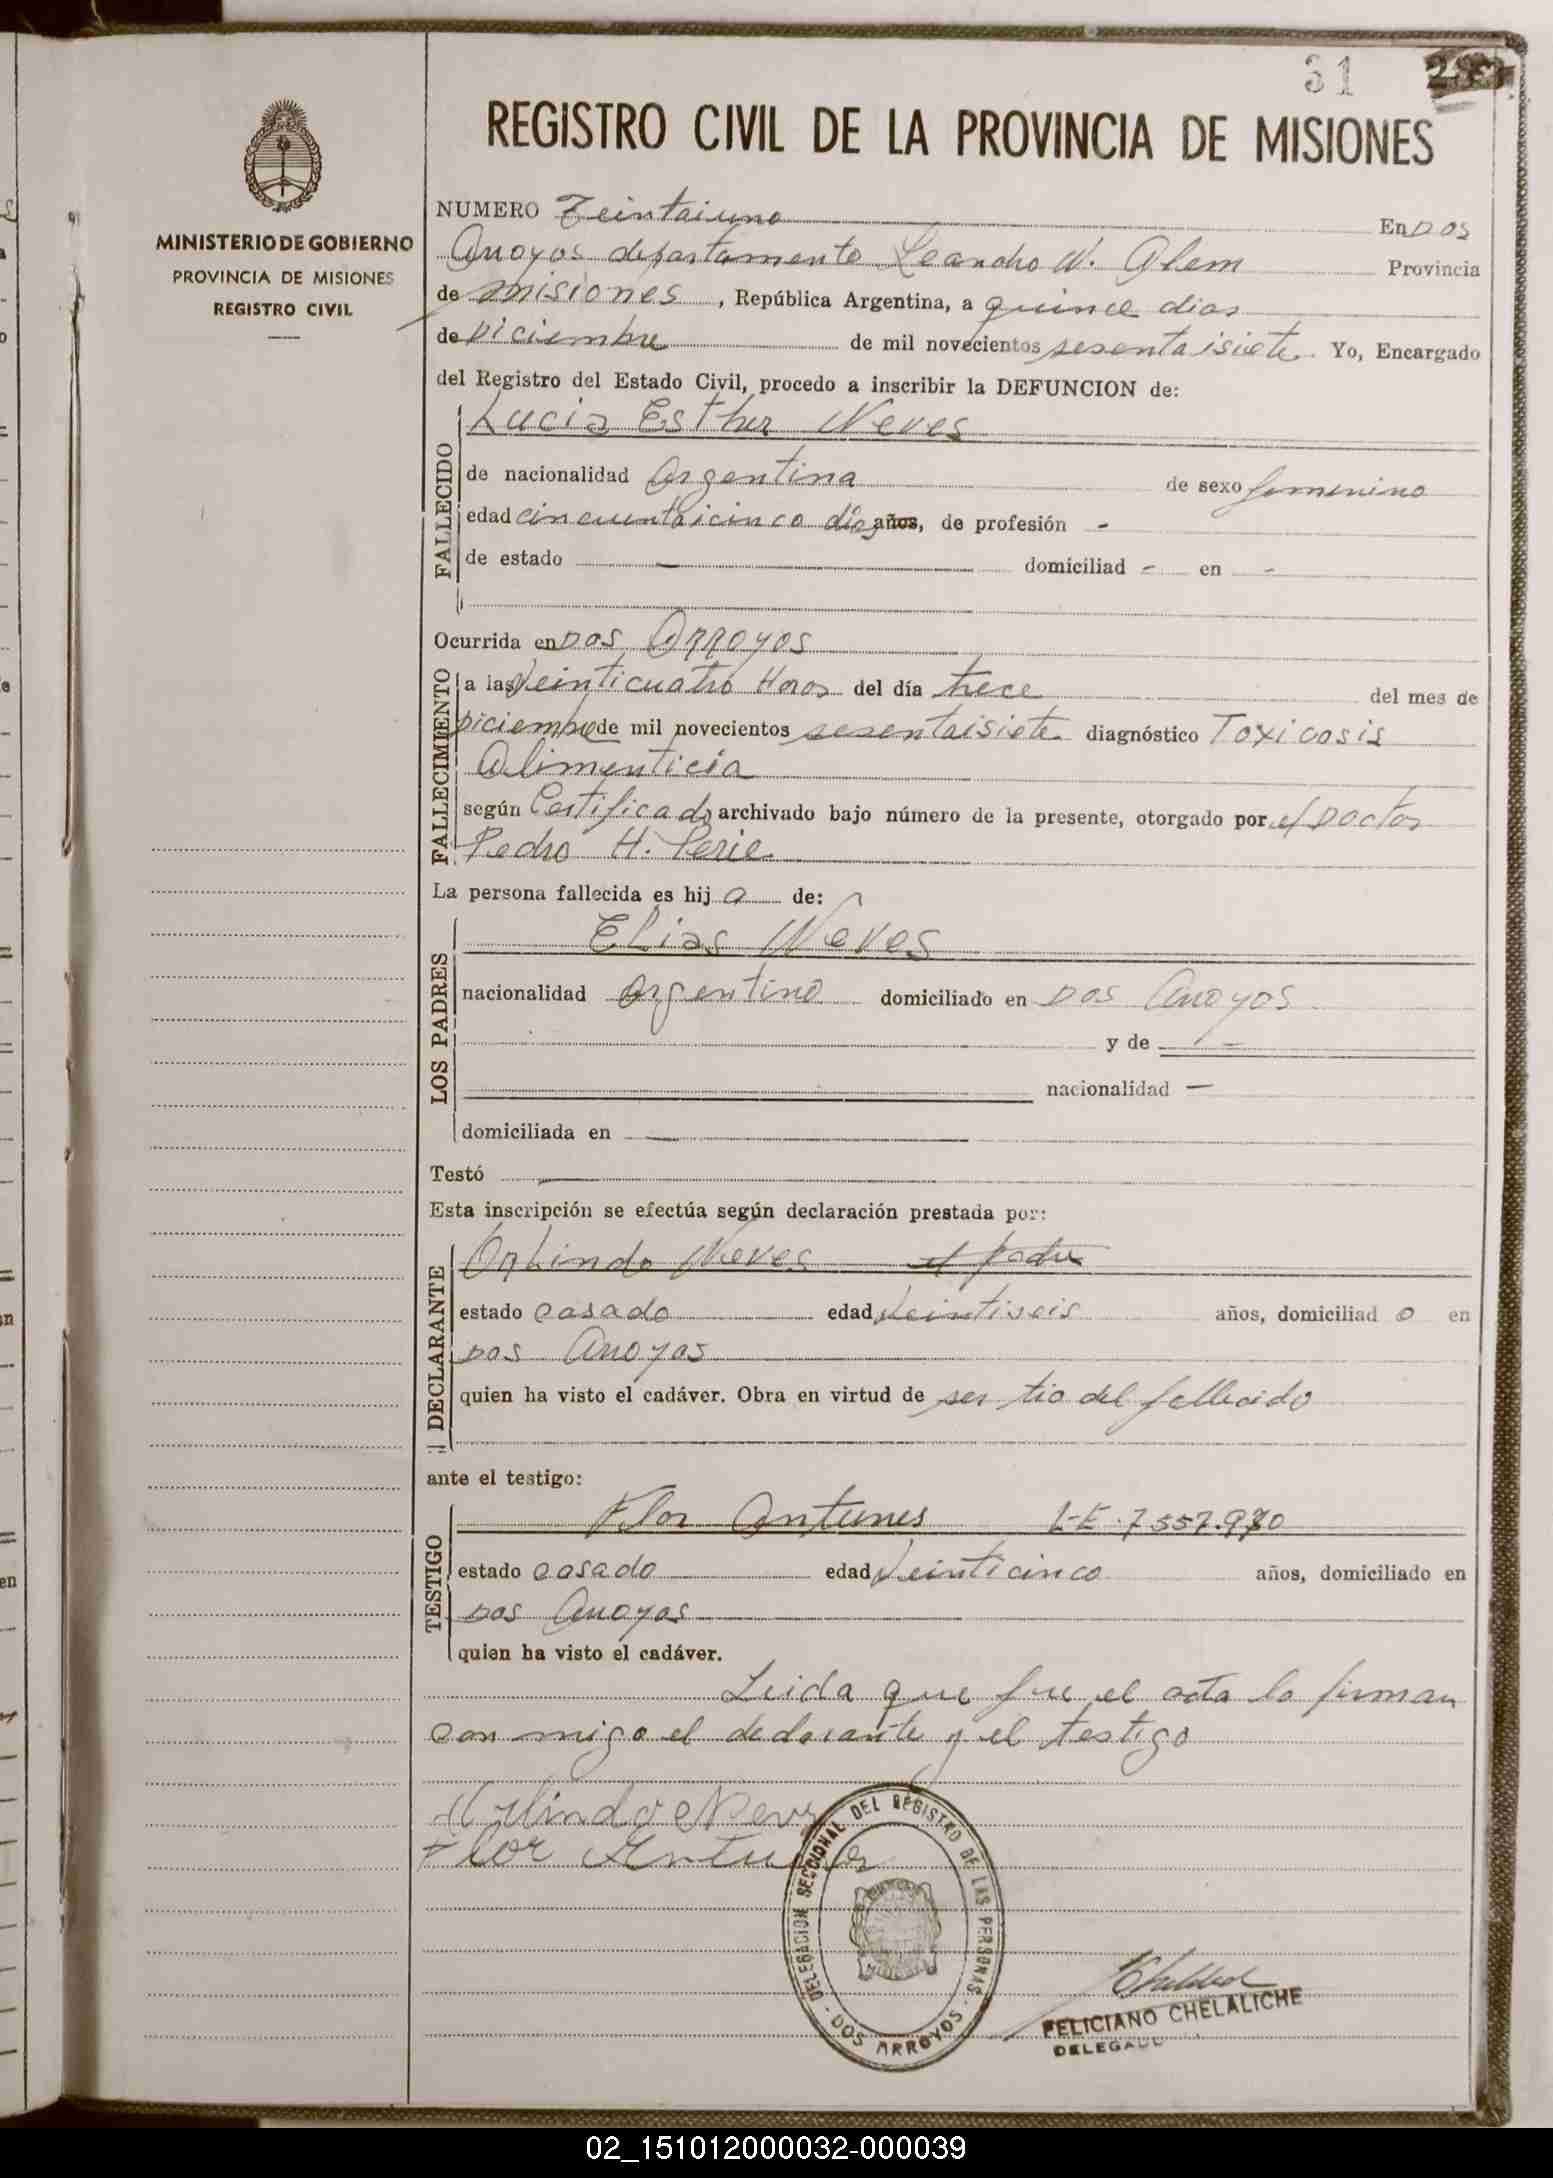 31
REGISTRO CIVIL DE LA PROVINCIA DE MISIONES
MINISTERIO DE GOBIERNO
PROVINCIA DE MISIONES
REGISTRO CIVIL
NUMERO Treintaiuno En Dos
Arroyos departamento Leandro N. Alem Provincia
de Misiones, República Argentina, a quince dias
de Diciembre de mil novecientos sesentaisiete Yo, Encargado
del Registro del Estado Civil, procedo a inscribir la DEFUNCION de:
FALLECIDO
Lucia Esther Neves
de nacionalidad Argentina de sexo femenino
edad cincuentaicinco días años, de profesión -
de estado — domiciliad - en -
Ocurrida en Dos Arroyos
FALLECIMIENTO
a las Veinticuatro Horas del día trece del mes de
Diciembre de mil novecientos sesentaisiete diagnóstico Toxicosis
Alimenticia
según Certificado archivado bajo número de la presente, otorgado por el Doctor
Pedro H. Perie
La persona fallecida es hij a de:
LOS PADRES
Elias Neves
nacionalidad Argentino domiciliado en Dos Arroyos
y de —
nacionalidad —
domiciliada en —
Testó —
Esta inscripción se efectúa según declaración prestada por:
DECLARANTE
Orlindo Neves el padre
estado casado edad Veintiseis años, domiciliad o en
Dos Arroyos
quien ha visto el cadáver. Obra en virtud de ser tio del fallecido
ante el testigo:
TESTIGO
Flor Antunes L-E-7557.970
estado casado edad Veinticinco años, domiciliado en
Dos Arroyos
quien ha visto el cadáver.
Leida que fue el acta la firman
con migo el declarante y el testigo
Orlindo Neves
Flor Antunes
DELEGACION SECCIONAL DEL REGISTRO DE LAS PERSONAS
- DOS ARROYOS -
FELICIANO CHELALICHE
DELEGADO
02_151012000032-000039